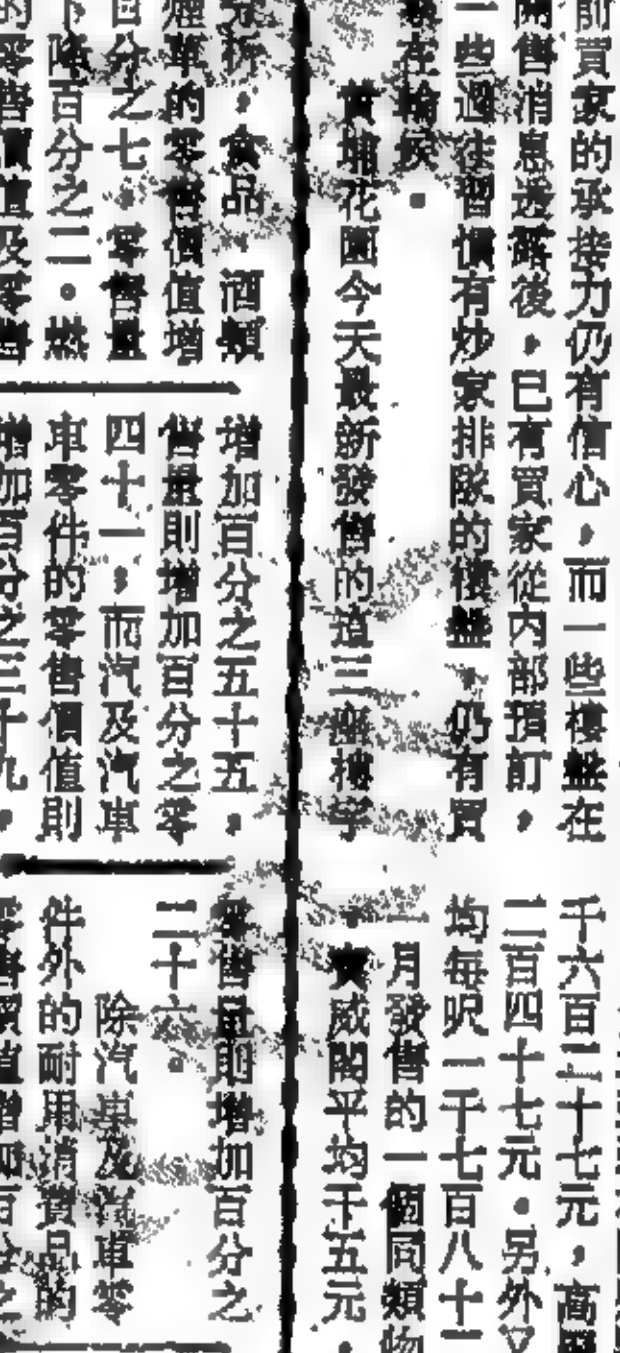 前買家的承接力仍有信心，而一些樓盤在
開售消息透露後，已有買家從內部預訂，
一些過往習慣有炒家排隊的樓盤，仍有買
在輪侯。
黃埔花園今天最新發售的這三幢樓宇
千六百二十七元，高
二百四十七元。另外又
均每呎一千七百八十
一月發售的一個同類物
威閣平均千五元．
析，食品、酒類
煙草的零售價值增
百分之七。零售量
下降百分之二。燃
的零售價值及零售
增加百分之五十五，
售量則增加百分之零
四十一，而汽及汽車
車零件的零售價值則
增加百分之三十九，
零售量則增加百分之
二十六。
除汽車及汽車零
件外的耐用消費品的
零售價值增加百分之